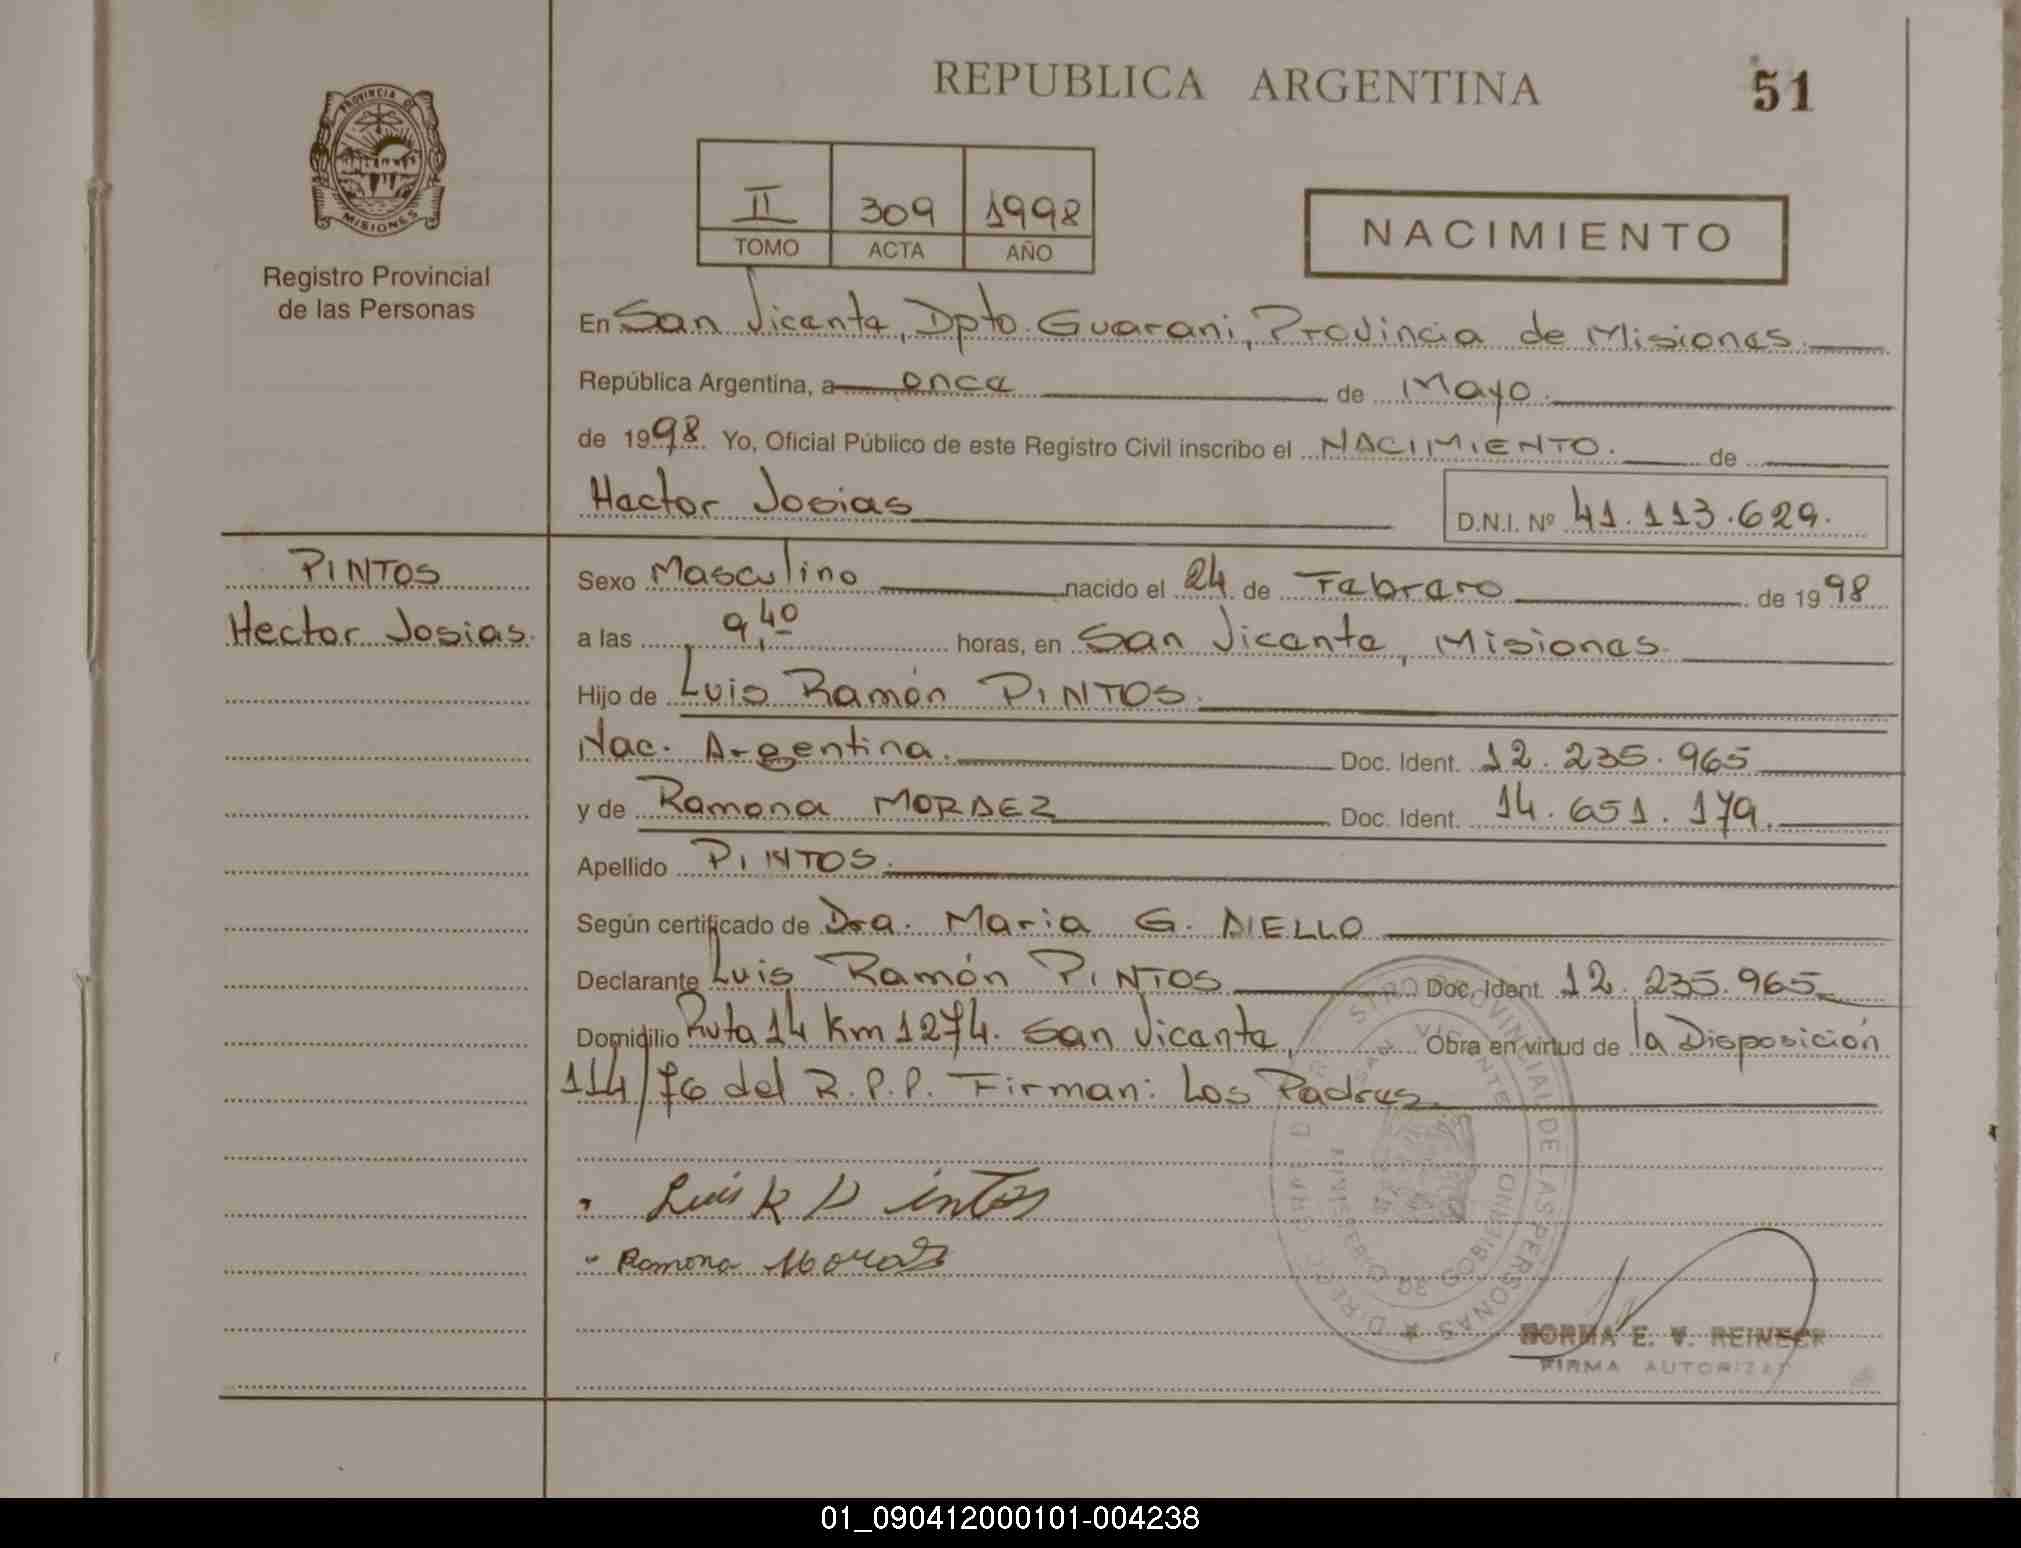 REPUBLICA ARGENTINA
51
PROVINCIA DE
MISIONES
Registro Provincial
de las Personas
II 309 1998
TOMO ACTA AÑO
NACIMIENTO
En San Vicente, Dpto. Guarani, Provincia de Misiones.
República Argentina, a once de Mayo.
de 1998. Yo, Oficial Público de este Registro Civil inscribo el NACIMIENTO. de
Hector Josias
D.N.I. Nº 41.113.629.
PINTOS
Hector Josias.
Sexo Masculino nacido el 24 de Febrero de 1998
a las 9,40 horas, en San Vicente, Misiones.
Hijo de Luis Ramón PINTOS.
Nac. Argentina. Doc. Ident. 12.235.965
y de Ramona MORAEZ Doc. Ident. 14.651.179.
Apellido PINTOS.
Según certificado de Dra. Maria G. AIELLO
Declarante Luis Ramón PINTOS Doc. Ident. 12.235.965
Domicilio Ruta 14 Km 1274. San Vicente, Obra en virtud de la Disposición
114/76 del R.P.P. Firman: Los Padres.
Luis R Pintos
Ramona Moraez
SAN VICENTE
MINISTERIO DE GOBIERNO
PROVINCIAL DE LAS PERSONAS
NORMA E. V. REINECK
FIRMA AUTORIZAD
01_090412000101-004238